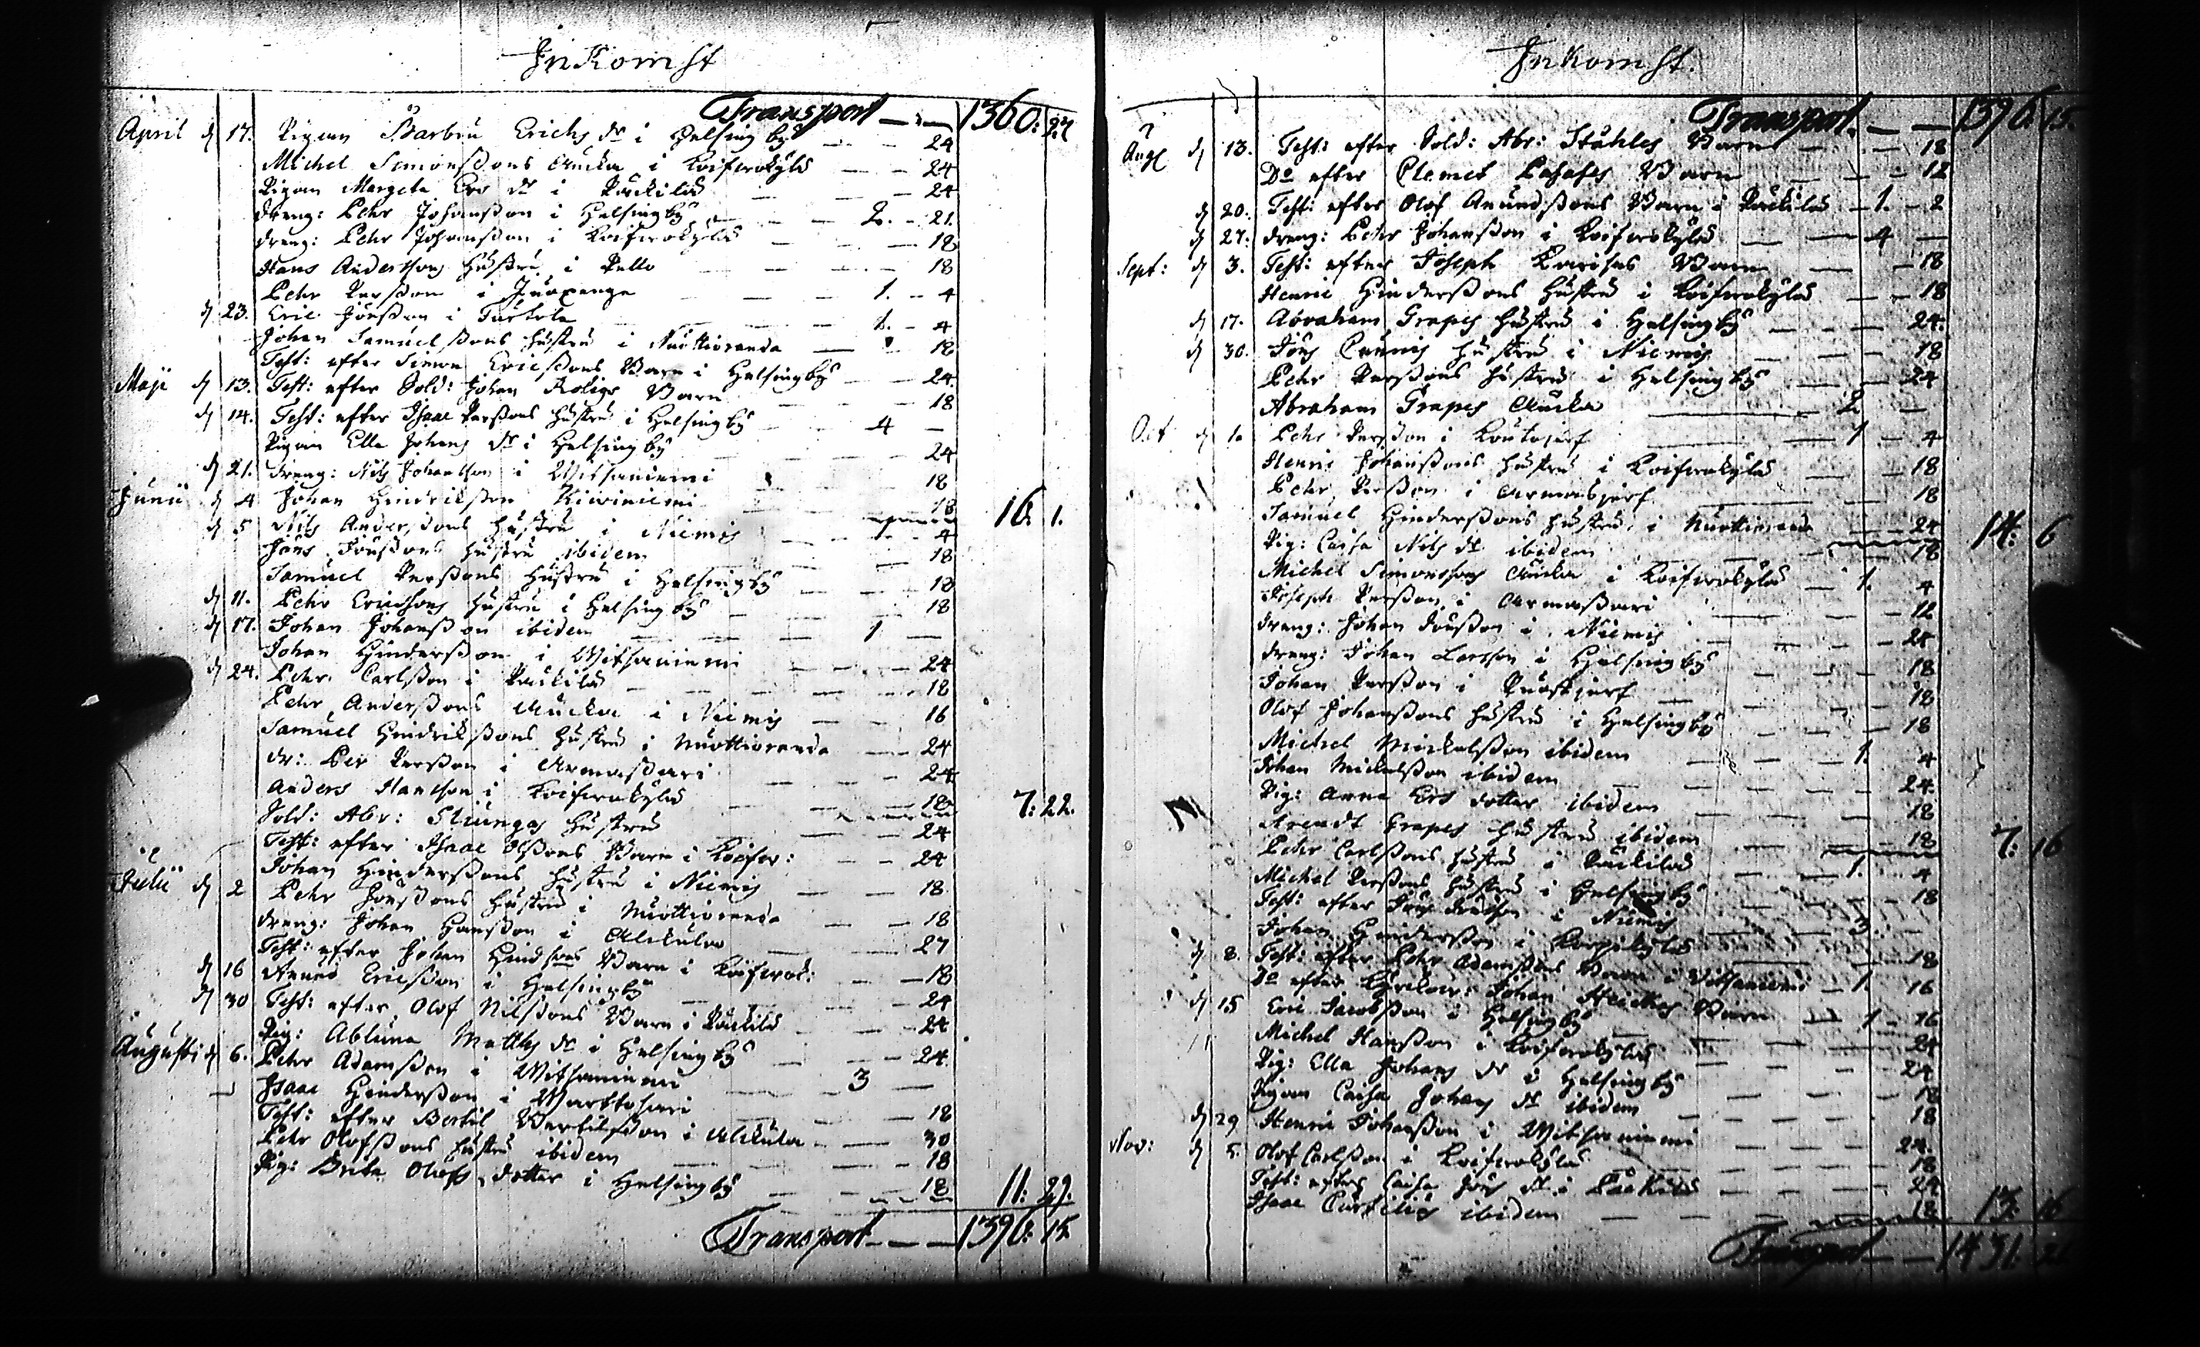 Inkomst
Transport — 1360: 27
April d 17. Pigan Barbru Erichs dr i Helsingby — 24
Michel Simonssons Enka i Koifwokylä — 24
Pigan Margeta Ers dr i Päckilä — 24
Dreng: Pehr Johansson i Helsingby — 2. - 21.
Dreng: Pehr Johansson i Koifwokylä — 18
Hans Anderssons hustru i Pello — 18
Pehr Persson i Juoxenge — 1. - 4
d 23. Eric Jönsson i Turtola — 1. - 4
Johan Samuelssons hustru i Nuottioranda — 18
Test: efter Simon Ericssons Barn i Helsingby — 24
Maji d 13. Test: efter Sold: Johan Roligs Barn — 18
d 14. Test: efter Isaac Perssons hustru i Helsingby — 4 —
Pigan Ella Johans dr i Helsingby — 24
d 21. Dreng: Nils Johansson i Witsaniemi — 18
Junii d 4 Johan Hindriksson Kiwiniemi — 18 16. 1.
d 5 Nils Anderssons hustru i Niemis — 1. - 4
Jöns Jönssons hustru ibidem — 18
Samuel Perssons hustru i Helsingby — 18
d 11. Pehr Ericssons hustru i Helsingby — 18
d 17. Johan Johansson ibidem — 1 —
Johan Hindersson i Witsaniemi — 24
d 24. Pehr Carlsson i Päckilä — 18
Pehr Anderssons Enka i Niemis — 16
Samuel Hindrikssons hustru i Nuottioranda — 24
Dr: Per Persson i Armassari — 24
Anders Hansson i Koifwokylä — 18 7: 22.
Sold: Abr: Slungas hustru — 24
Test: efter Isaac Olssons Barn i Koifwo: — 24
Johan Hinderssons hustru i Niemis — 18
Julii d 2 Pehr Jönssons hustru i Nuottioranda — 18
Dreng: Johan Hansson i Alkula — 27
Test: efter Johan Hindssons Barn i Koifwok: — 18
d 16 Anund Ericsson i Helsingby — 24
d 30 Test: efter Olof Nilssons Barn i Päckilä — 24
Pig: Abluna Matths dr i Helsingby — 24
Augusti d 6. Pehr Adamsson i Witsaniemi — 3 —
Isaac Hindersson i Marttosari — 18
Test: efter Bertil Bertilsson i Alkula — 30
Pehr Olofssons hustru ibidem — 18
Pig: Brita Olofs dotter i Helsingby — 18 11: 29.
Transport — 1396: 15.
Inkomst.
Transport. — 1396. 15.
Aug d 13. Test: efter Sold: Abr: Ståhles Barn — 18
Do efter Clemet Barn — 12
d 20. Test: efter Olof Anundssons Barn i Päckilä — 1. - 2
d 27. Dreng: Pehr Johansson i Koifwokylä — 4 —
Sept: d 3. Test: efter Joseph Barn — 18
Henric Hinderssons hustru i Koifwokylä — 18
d 17. Abraham Grapes hustru i Helsingby — 24.
d 30. Jöns hustru i Niemis — 18
Pehr Perssons hustru i Helsingby — 24
Abraham Grapes Enka — 2 —
Oct d 1. Pehr Persson i — 1 - 4
Henric Johanssons hustru i Koifwokylä — 18
Pehr Persson i Armasjerf — 18
Samuel Hinderssons hustru i Nuottioranda — 24
Pig: Caisa Nils dr ibidem — 18 14: 6
Michel Simonssons Enka i Koifwokylä — 1. 4
Joseph Persson i Armassari — 12
Dreng: Johan Jönsson i Niemis — 24
Dreng: Johan Larsson i Helsingby — 18
Johan Persson i — 18
Olof Johanssons hustru i Helsingby — 18
Michel Mickelsson ibidem — 1. 4
Johan Mickelsson ibidem — 24.
Pig: Anna Ers dotter ibidem — 18
Arendt Grapes hustru ibidem — 18 7: 16
Pehr Carlssons hustru i Päckilä — 1. 4
Michel Perssons hustru i Helsingby — 18
Test: efter Jöns i Niemis — 3. —
Johan Hindersson i — 18
d 8. Test: efter Pehr Adamssons Barn i Witsaniemi — 1. 16
Do efter Johan Barn — 1 - 16
d 15 Eric Jacobsson i Helsingby — 24
Michel Hansson i Koifwokylä — 24
Pig: Ella Johans dr i Helsingby — 18
Pigan Caisa Johans dr ibidem — 18
d 29 Henric Johansson i Witsaniemi — 24.
Nov: d 5 Olof Carlsson i Koifwokylä — 18
Test: efter Caisa Jöns dr i Päckilä — 24
Isaac ibidem — 18 13: 16
Transport — 1431. 21